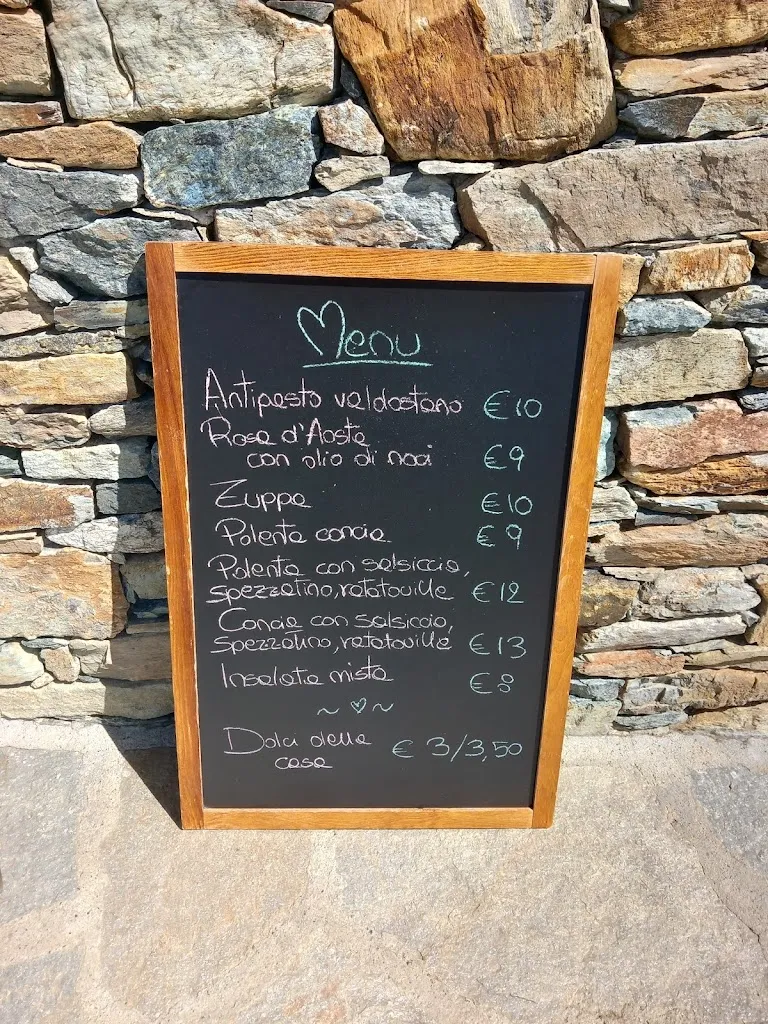 Menu
Antipasto valdostano €10
Rosa d'Aosta
con olio di noci €9
Zuppa €10
Polenta concia €9
Polenta con salsiccia,
spezzatino, ratatouille €12
Concia con salsiccia,
spezzatino, ratatouille €13
Insalata mista €8
~ ♡ ~
Dolci della
casa € 3/3,50